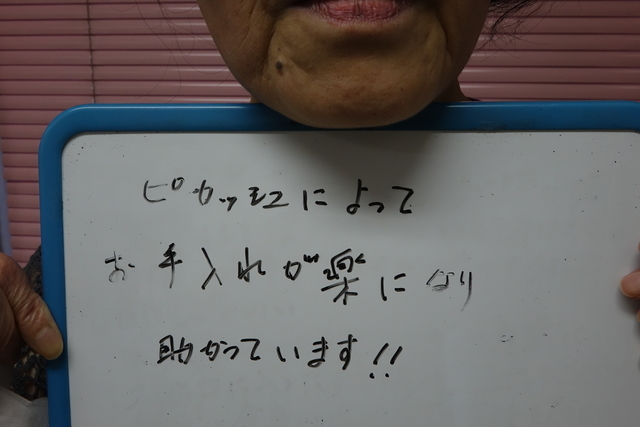 ピカッシュによって
お手入れが楽になり
助かっています!!